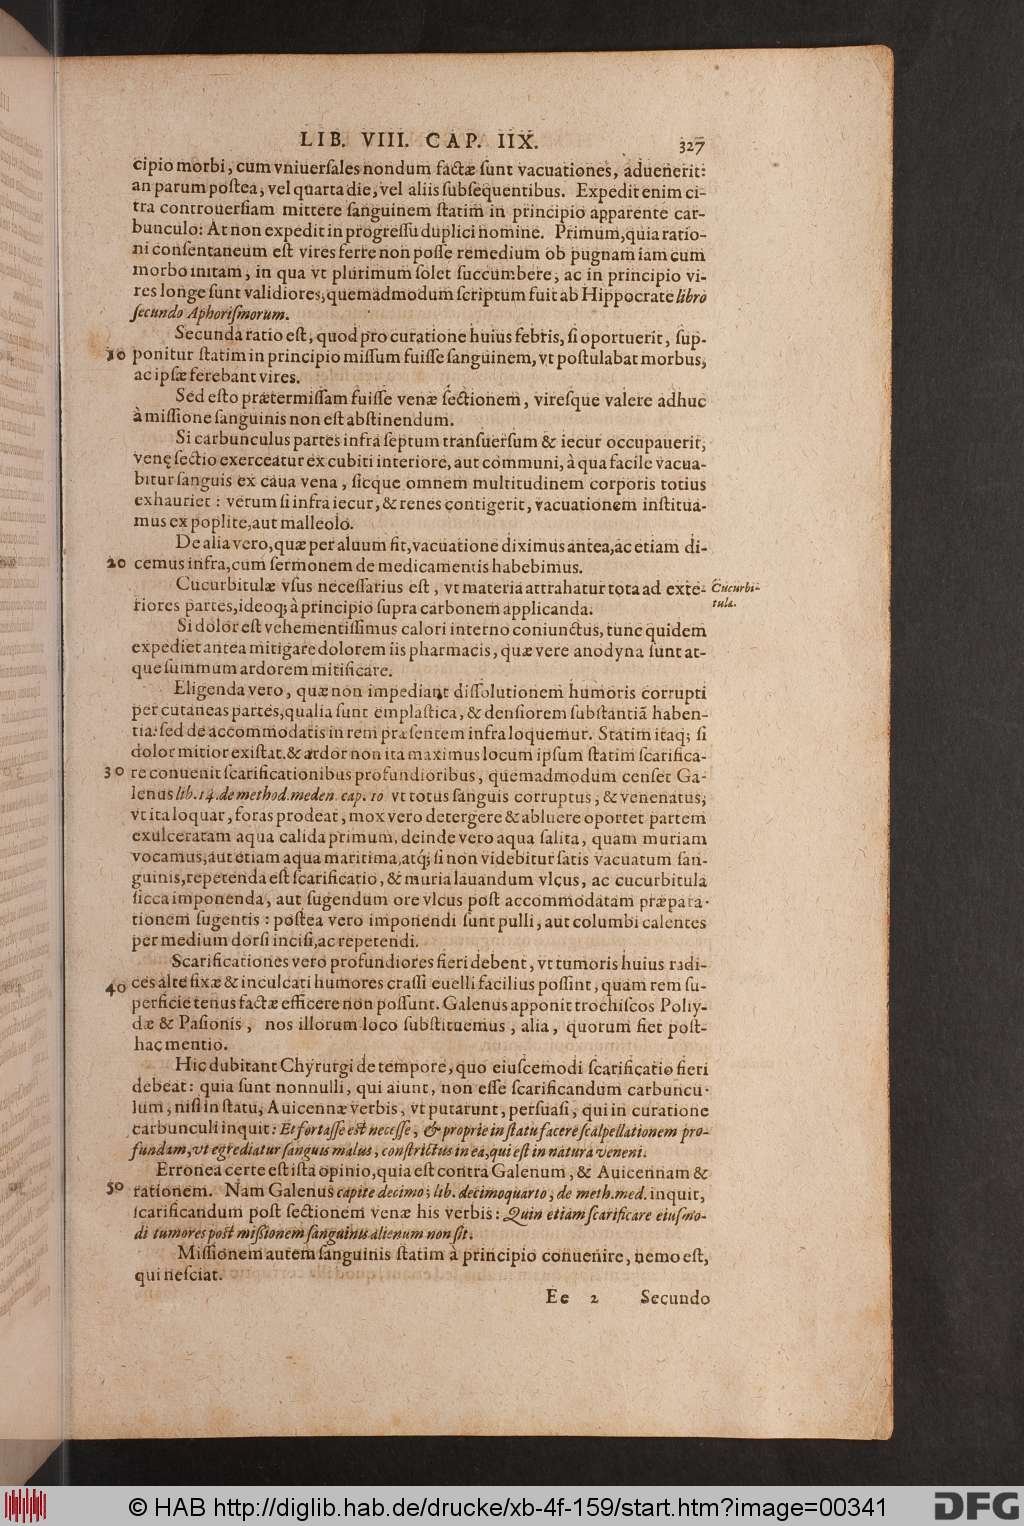 LIB. VIII. CAP. IIX. 327
cipio morbi, cum vniuerſales nondum factæ ſunt vacuationes, aduenerit:
an parum poſtea, vel quarta die, vel aliis ſubſequentibus. Expedit enim ci-
tra controuerſiam mittere ſanguinem ſtatim in principio apparente car-
bunculo: At non expedit in progreſſu duplici nomine. Primum, quia ratio-
ni conſentaneum eſt vires ferre non poſſe remedium ob pugnam iam cum
morbo initam, in qua vt plurimum ſolet ſuccumbere, ac in principio vi-
res longe ſunt validiores, quemadmodum ſcriptum fuit ab Hippocrate libro
ſecundo Aphoriſmorum.
Secunda ratio eſt, quod pro curatione huius febris, ſi oportuerit, ſup-
10 ponitur ſtatim in principio miſſum fuiſſe ſanguinem, vt poſtulabat morbus,
ac ipſæ ferebant vires.
Sed eſto prætermiſſam fuiſſe venæ ſectionem, vireſque valere adhuc
à miſſione ſanguinis non eſt abſtinendum.
Si carbunculus partes infra ſeptum tranſuerſum & iecur occupauerit,
venę ſectio exerceatur ex cubiti interiore, aut communi, à qua facile vacua-
bitur ſanguis ex caua vena, ſicque omnem multitudinem corporis totius
exhauriet: verum ſi infra iecur, & renes contigerit, vacuationem inſtitua-
mus ex poplite, aut malleolo.
De alia vero, quæ per aluum fit, vacuatione diximus antea, ac etiam di-
20 cemus infra, cum ſermonem de medicamentis habebimus.
Cucurbitulæ vſus neceſſarius eſt, vt materia attrahatur tota ad exte- Cucurbi-
riores partes, ideoq; à principio ſupra carbonem applicanda. tula.
Si dolor eſt vehementiſſimus calori interno coniunctus, tunc quidem
expediet antea mitigare dolorem iis pharmacis, quæ vere anodyna ſunt at-
que ſummum ardorem mitificare.
Eligenda vero, quæ non impediant diſſolutionem humoris corrupti
per cutaneas partes, qualia ſunt emplaſtica, & denſiorem ſubſtantiã haben-
tia: ſed de accommodatis in rem præſentem infra loquemur. Statim itaq; ſi
dolor mitior exiſtat. & ardor non ita maximus locum ipſum ſtatim ſcarifica-
30 re conuenit ſcarificationibus profundioribus, quemadmodum cenſet Ga-
lenus lib. 14. de method. meden. cap. 10 vt totus ſanguis corruptus, & venenatus,
vt ita loquar, foras prodeat, mox vero detergere & abluere oportet partem
exulceratam aqua calida primum, deinde vero aqua ſalita, quam muriam
vocamus, aut etiam aqua maritima, atq; ſi non videbitur ſatis vacuatum ſan-
guinis, repetenda eſt ſcarificatio, & muria lauandum vlcus, ac cucurbitula
ſicca imponenda, aut ſugendum ore vlcus poſt accommodatam præpara-
tionem ſugentis: poſtea vero imponendi ſunt pulli, aut columbi calentes
per medium dorſi inciſi, ac repetendi.
Scarificationes vero profundiores fieri debent, vt tumoris huius radi-
40 ces alte fixæ & inculcati humores craſſi euelli facilius poſſint, quam rem ſu-
perficie tenus factæ efficere non poſſunt. Galenus apponit trochiſcos Poliy-
dæ & Paſionis, nos illorum loco ſubſtituemus, alia, quorum fiet poſt-
hac mentio.
Hic dubitant Chyrurgi de tempore, quo eiuſcemodi ſcarificatio fieri
debeat: quia ſunt nonnulli, qui aiunt, non eſſe ſcarificandum carbuncu-
lum, niſi in ſtatu, Auicennæ verbis, vt putarunt, perſuaſi, qui in curatione
carbunculi inquit: Et fortaſſe eſt neceſſe, & proprie in ſtatu facere ſcalpellationem pro-
fundam, vt egrediatur ſanguis malus, conſtrictus in ea, qui eſt in natura veneni.
Erronea certe eſt iſta opinio, quia eſt contra Galenum, & Auicennam &
50 rationem. Nam Galenus capite decimo, lib. decimoquarto, de meth. med. inquit,
ſcarificandum poſt ſectionem venæ his verbis: Quin etiam ſcarificare eiuſmo-
di tumores poſt miſſionem ſanguinis alienum non ſit.
Miſſionem autem ſanguinis ſtatim à principio conuenire, nemo eſt,
qui neſciat.
Ee 2 Secundo
© HAB http://diglib.hab.de/drucke/xb-4f-159/start.htm?image=00341
DFG